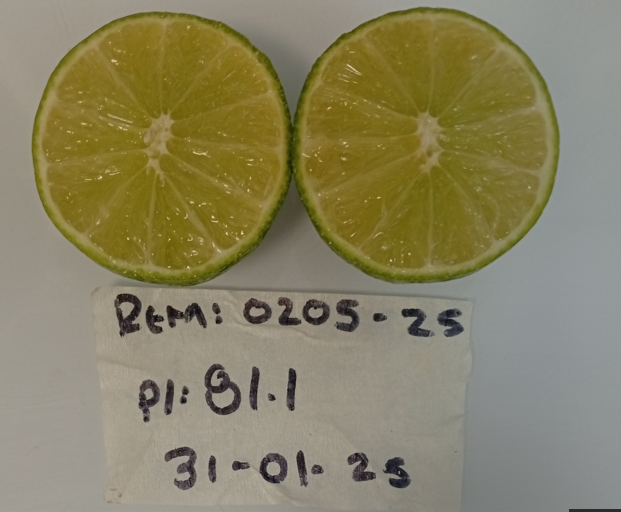 REM: 0205-25
pl: 81.1
31-01-25